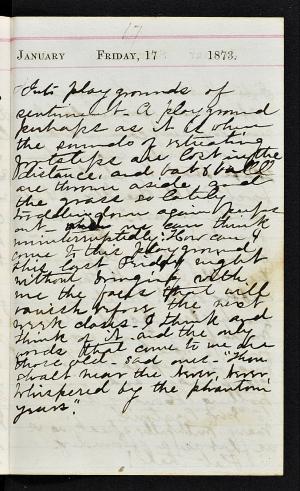 17
JANUARY FRIDAY, 17 1873.
Into playgrounds of
sentiment. A playground
perhaps as it is, oh,
the sounds of retreating
footsteps are lost in the
distance, and bat & ball
are thrown aside and
the grass so lately
trodden down again peeps
out and I can think
uninterruptedly. How can I
come to this playground
this last Friday night
without bringing with
me the faces that will
vanish before the next
work closes. I think and
think of it and the only
words that come to me are
those sad ones - "Thou
shalt near the never, never
whispered by the phantom
years".